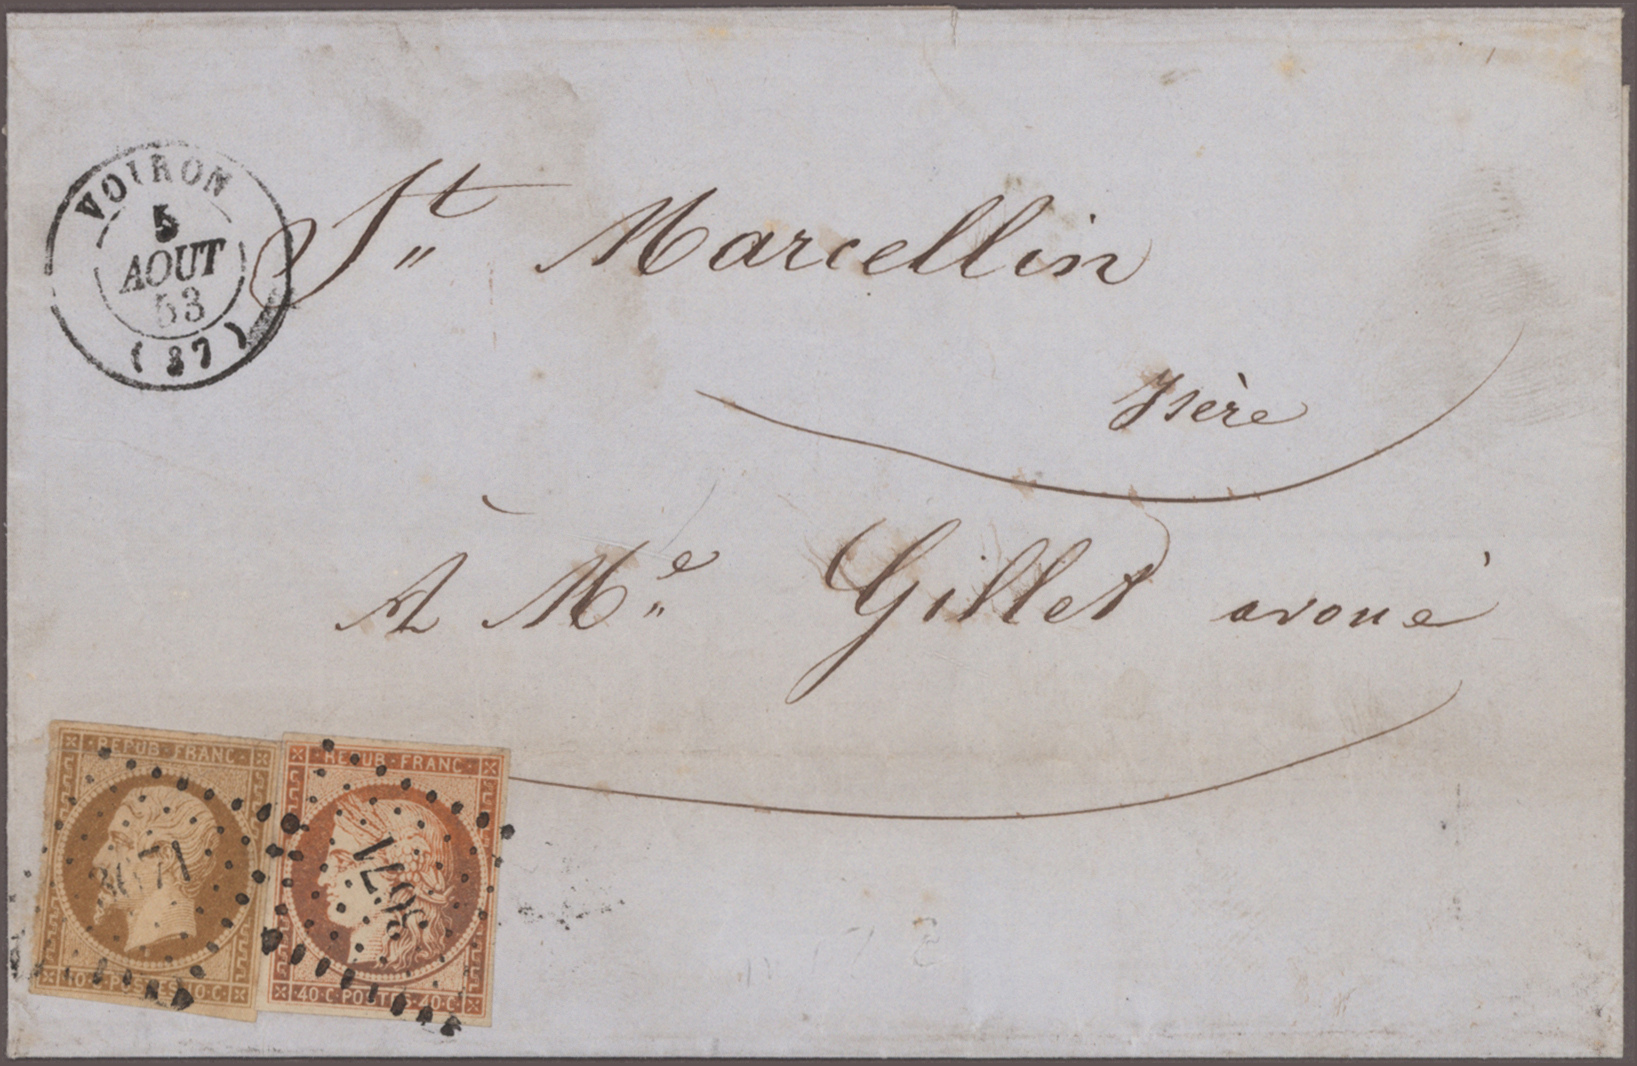 VOIRON
5
AOUT
53
(37)
St Marcellin
Isère
A Me Gillet avoué
REPUB·FRANC·
3671
10·C·POSTES·10·C·
REPUB·FRANC·
3671
40·C·POSTES·40·C·